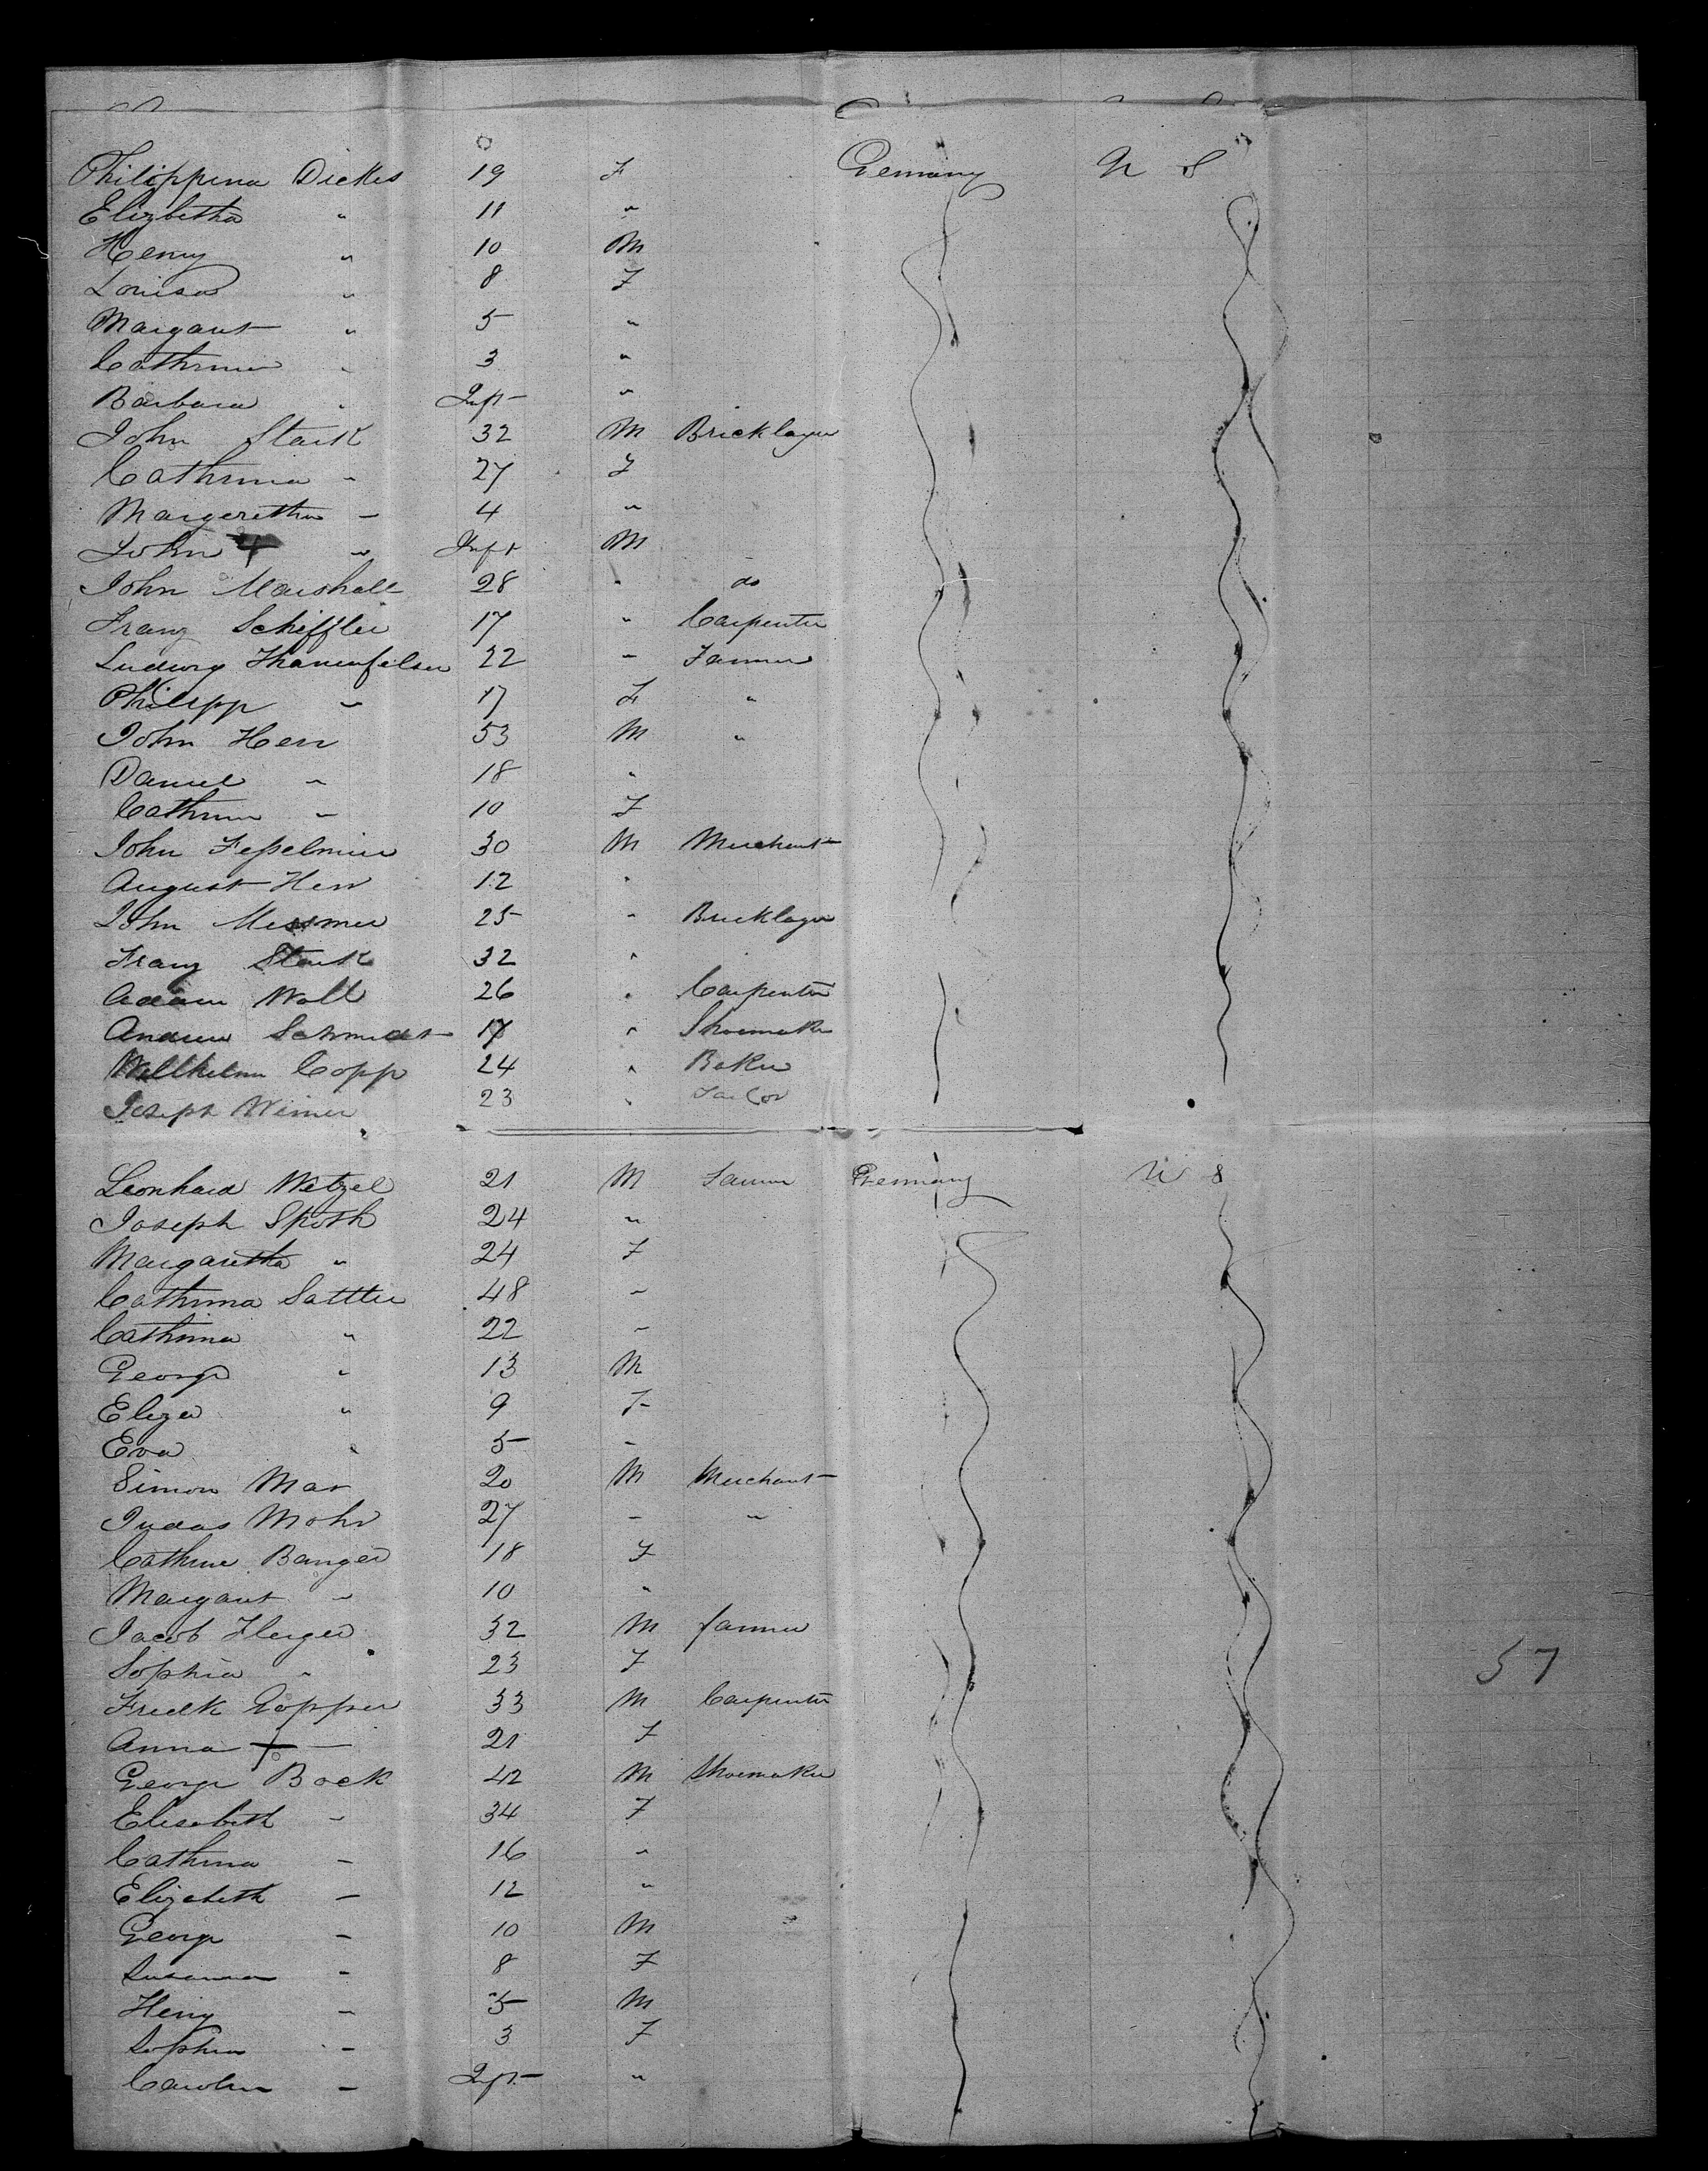 Philippina Dickes 19 F Germany U S
Elizbetha " 11 "
Henry " 10 M
Louisa " 8 F
Margaret " 5 "
Cathrina " 3 "
Barbara " Inft "
John Stark 32 M Bricklayer
Cathrina " 27 F
Margeretha " 4 "
John " Inft M
John Marshall 28 " do
Franz Schiffler 17 " Carpenter
Ludwig 22 " Farmer
Philipp " 17 F "
John Herr 53 M "
Daniel " 18 "
Cathrina " 10 F
John 30 M Merchant
August Herr 12 "
John Messmer 25 " Bricklayer
Franz Stark 32 "
Adam Woll 26 " Carpenter
Andrew Schmidt 17 " Shoemaker
Willhelm Copp 24 " Baker
Joseph Weimer 23 " Tailor
Leonhard Wetzel 21 M Farmer Germany U S
Joseph Spoth 24 "
Margaretha " 24 F
Cathrina Sattler 48 "
Cathrina " 22 "
George " 13 M
Eliza " 9 F
Eva " 5 "
Simon Mar 20 M Merchant
Judas Mohr 27 " "
Cathrine Banger 18 F
Margaret " 10 "
Jacob Fleiger 32 M farmer
Sophia " 23 F
57
Fredk 33 M Carpenter
Anna — 21 F
George Bock 42 M Shoemaker
Elisabeth " 34 F
Cathrina " 16 "
Elizabeth " 12 "
George " 10 M
Susanna " 8 F
Henry " 5 M
Sophia " 3 F
Carolina " Inft "